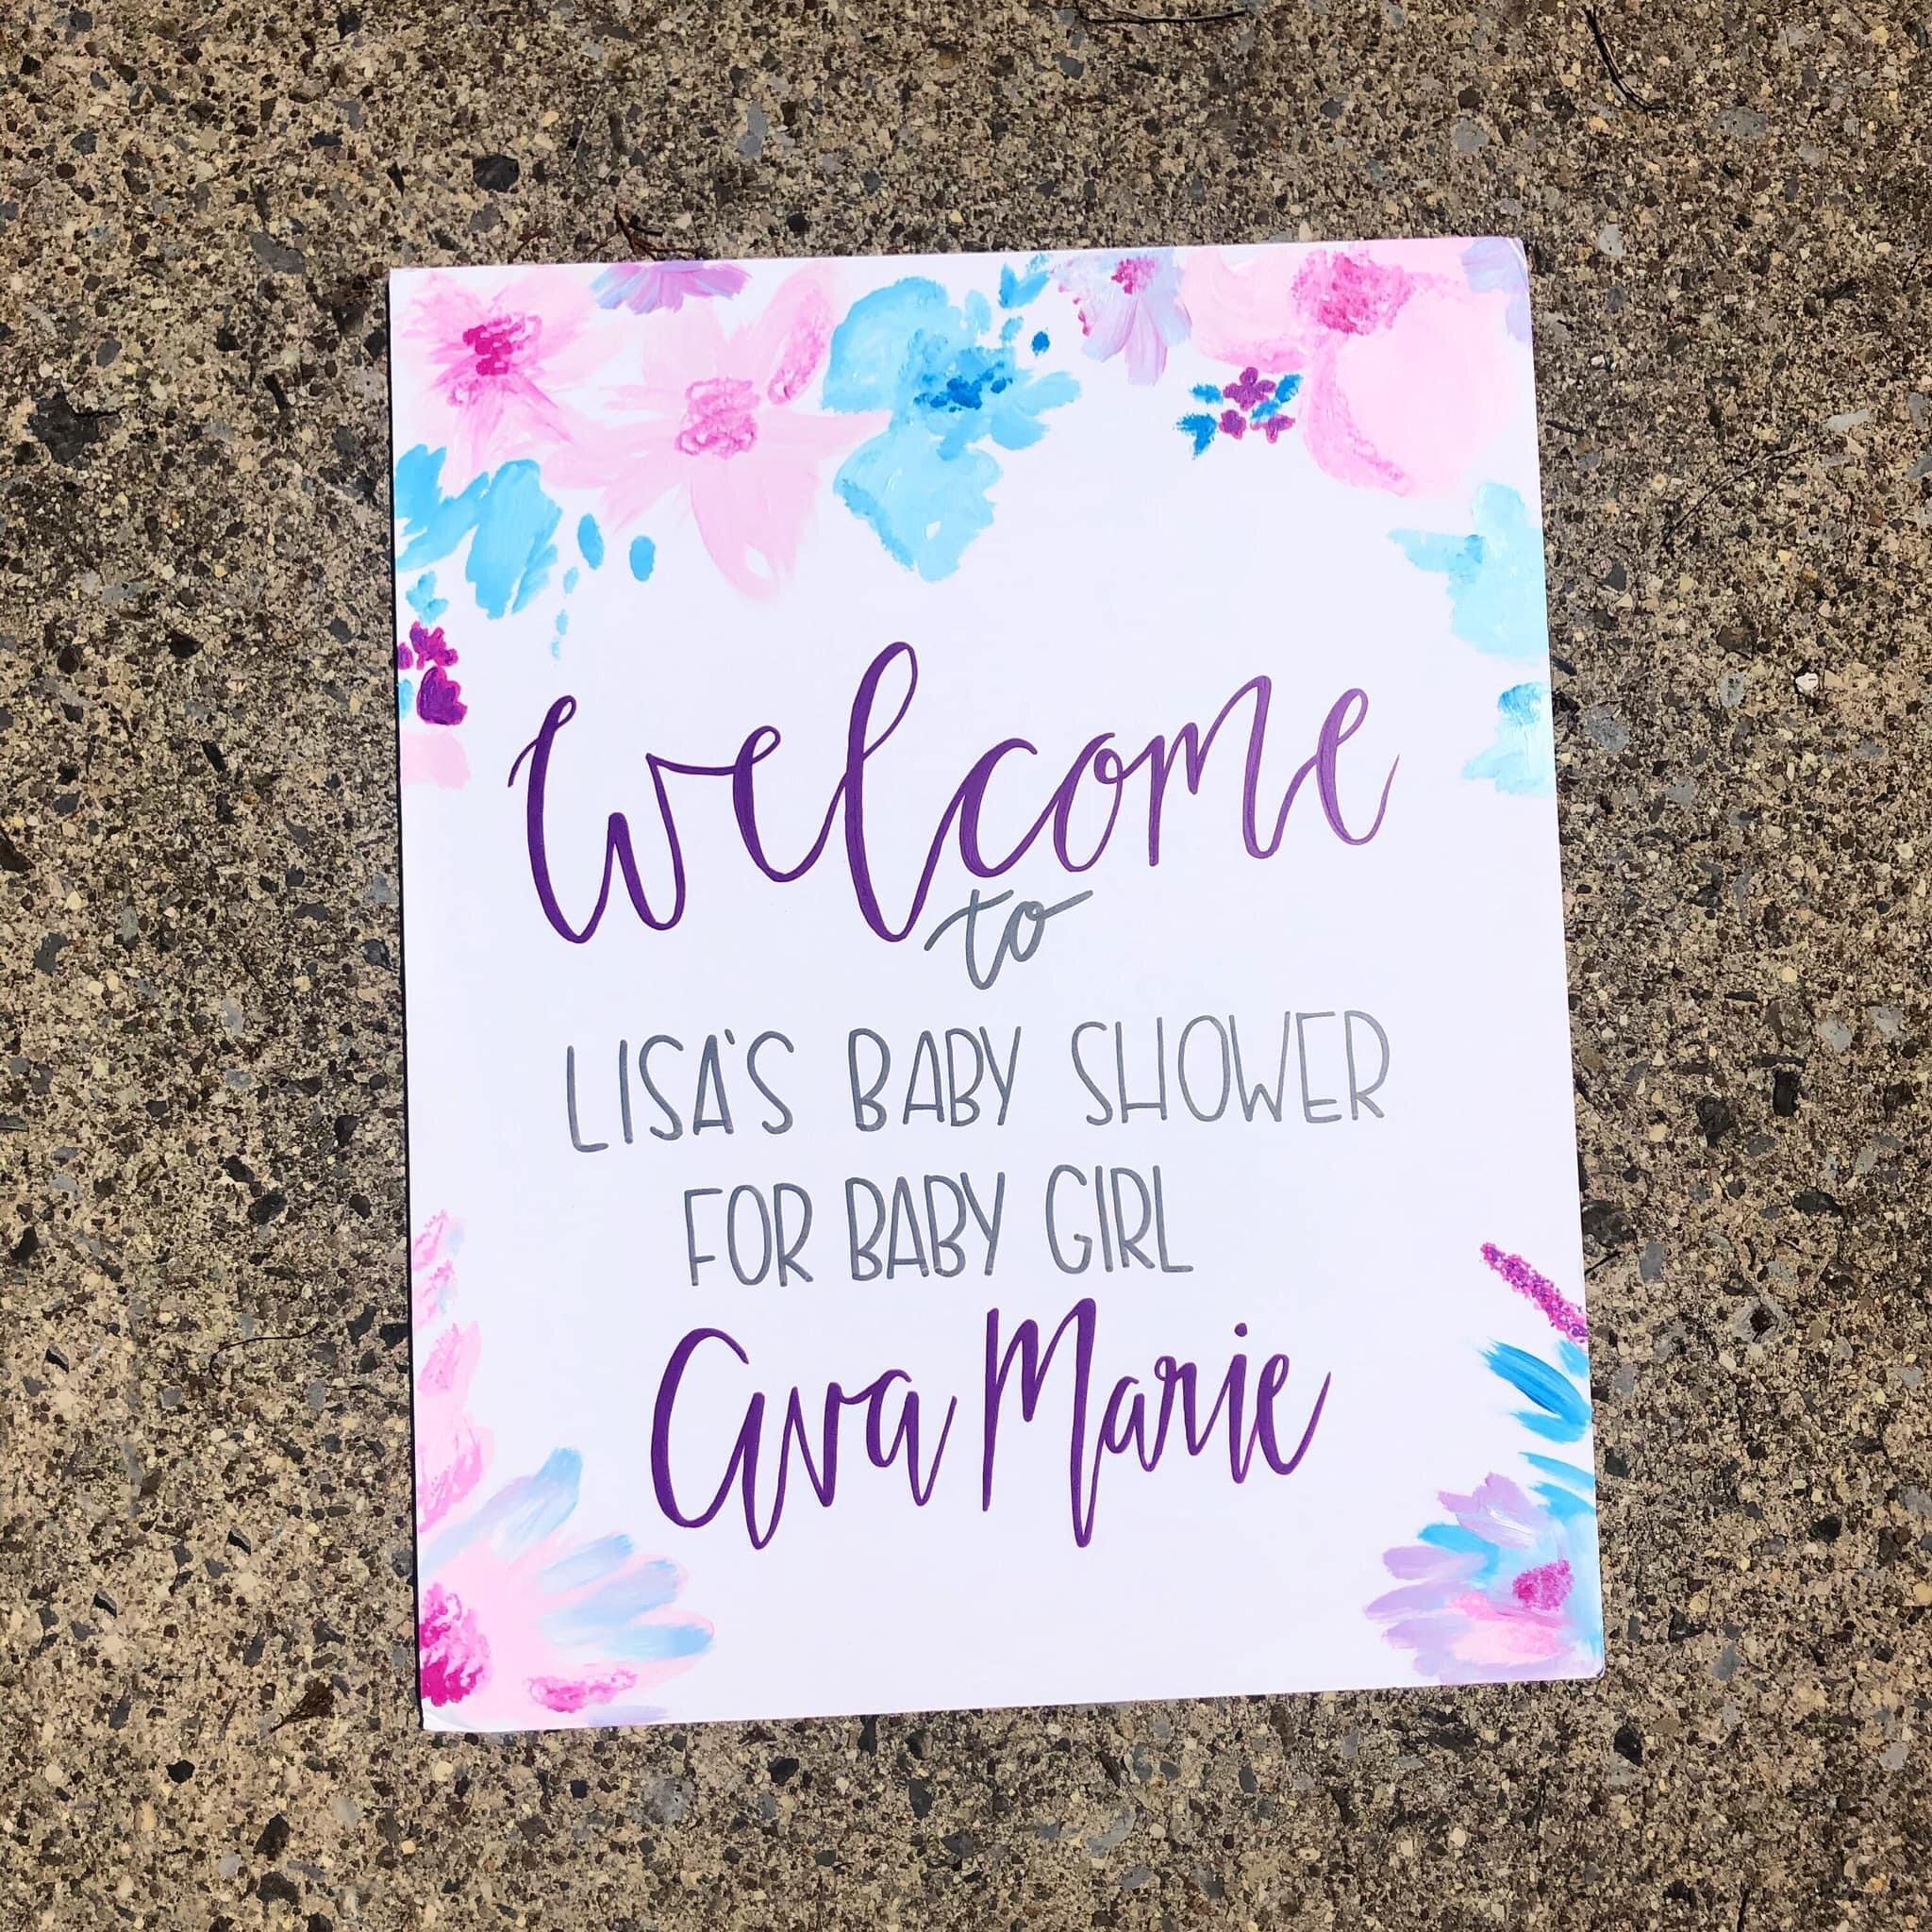 Welcome
to
LISA'S BABY SHOWER
FOR BABY GIRL
Ava Marie